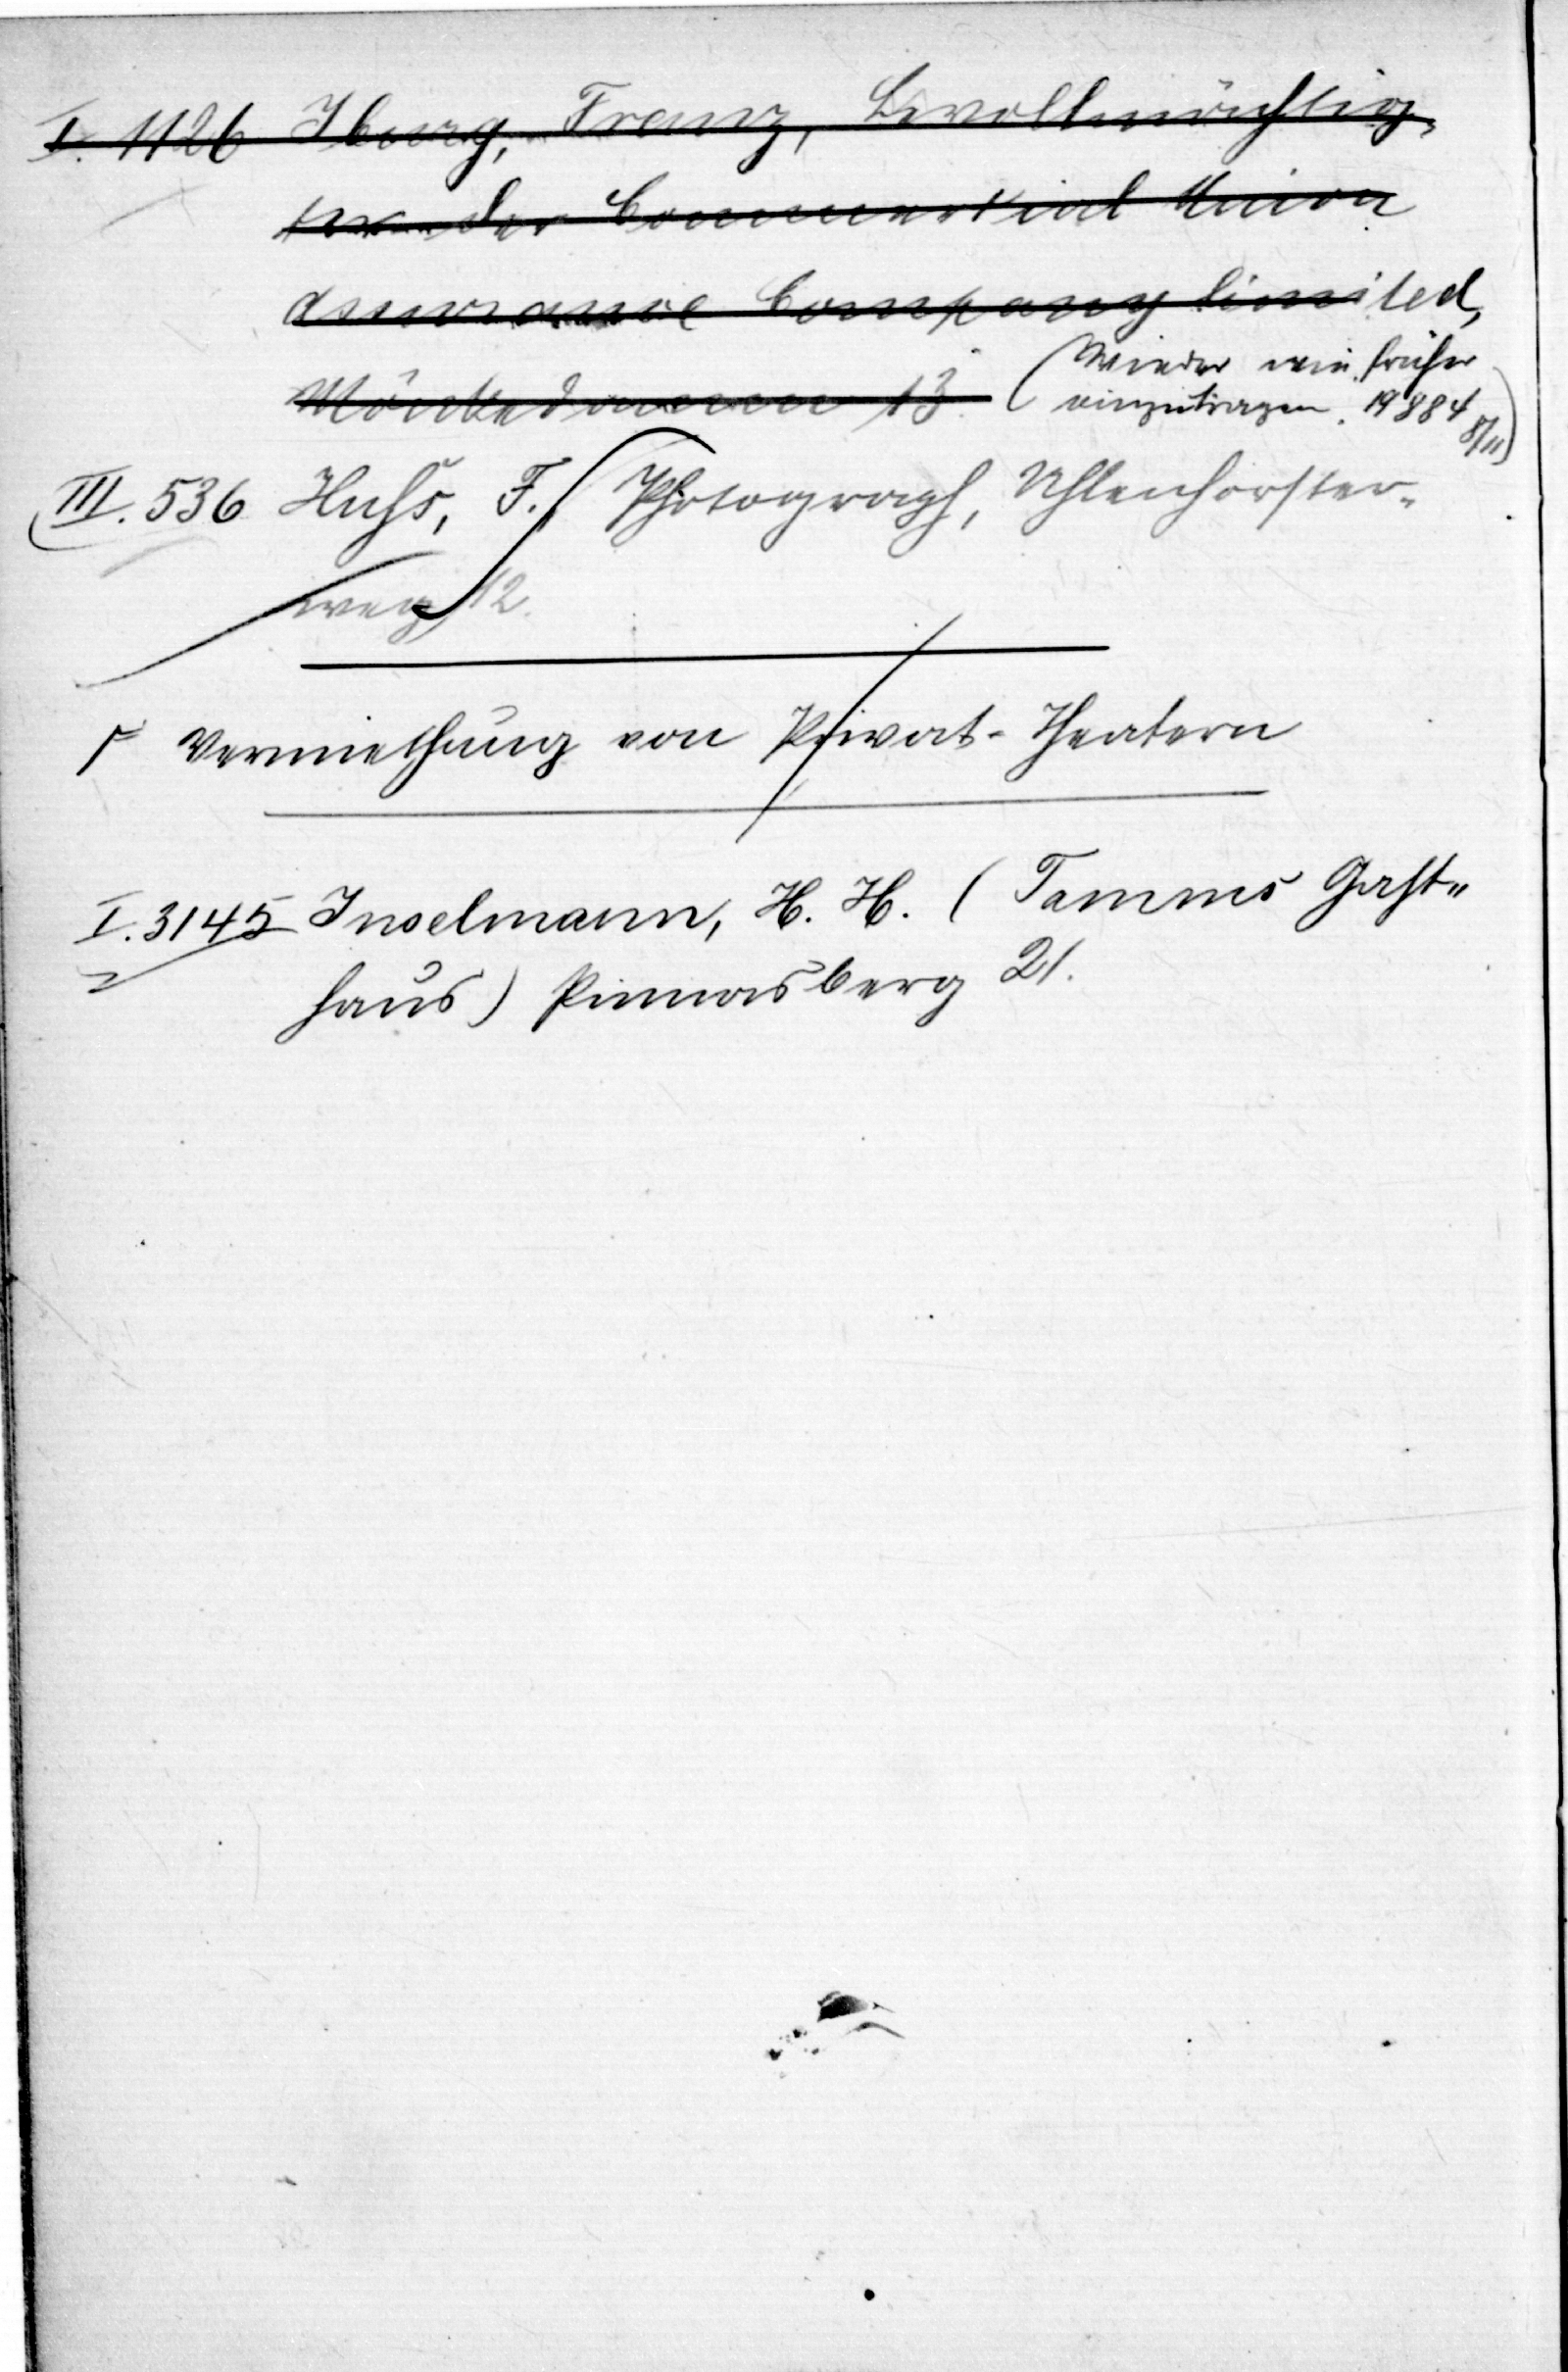 I. 1126 Iburg, Franz, Bevollmächtig-
ter der Commercial Union
Assurance Company limited,
Mönkedamm 13. (Wieder wie früher
einzutragen. 19884 8/11)
III. 536 Huhs, F. Photograph, Uhlenhorster-
weg 12.
Vermiethung von Privat-Theatern
I. 3145 Inselmann, H. H. (Tamms Gast-
haus) Pinnasberg 21.